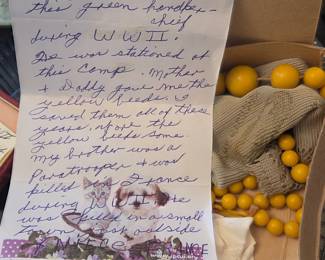 this green handker-
chief
during WWII.
He was stationed at
this Camp. Mother
+ Daddy gave me the
yellow beeds. I
saved them all of these
years. Wore the
yellow beeds some.
My brother was a
Paratrooper + was
killed in France
during WWII. He
was killed in a small
town just outside
NICE FRANCE